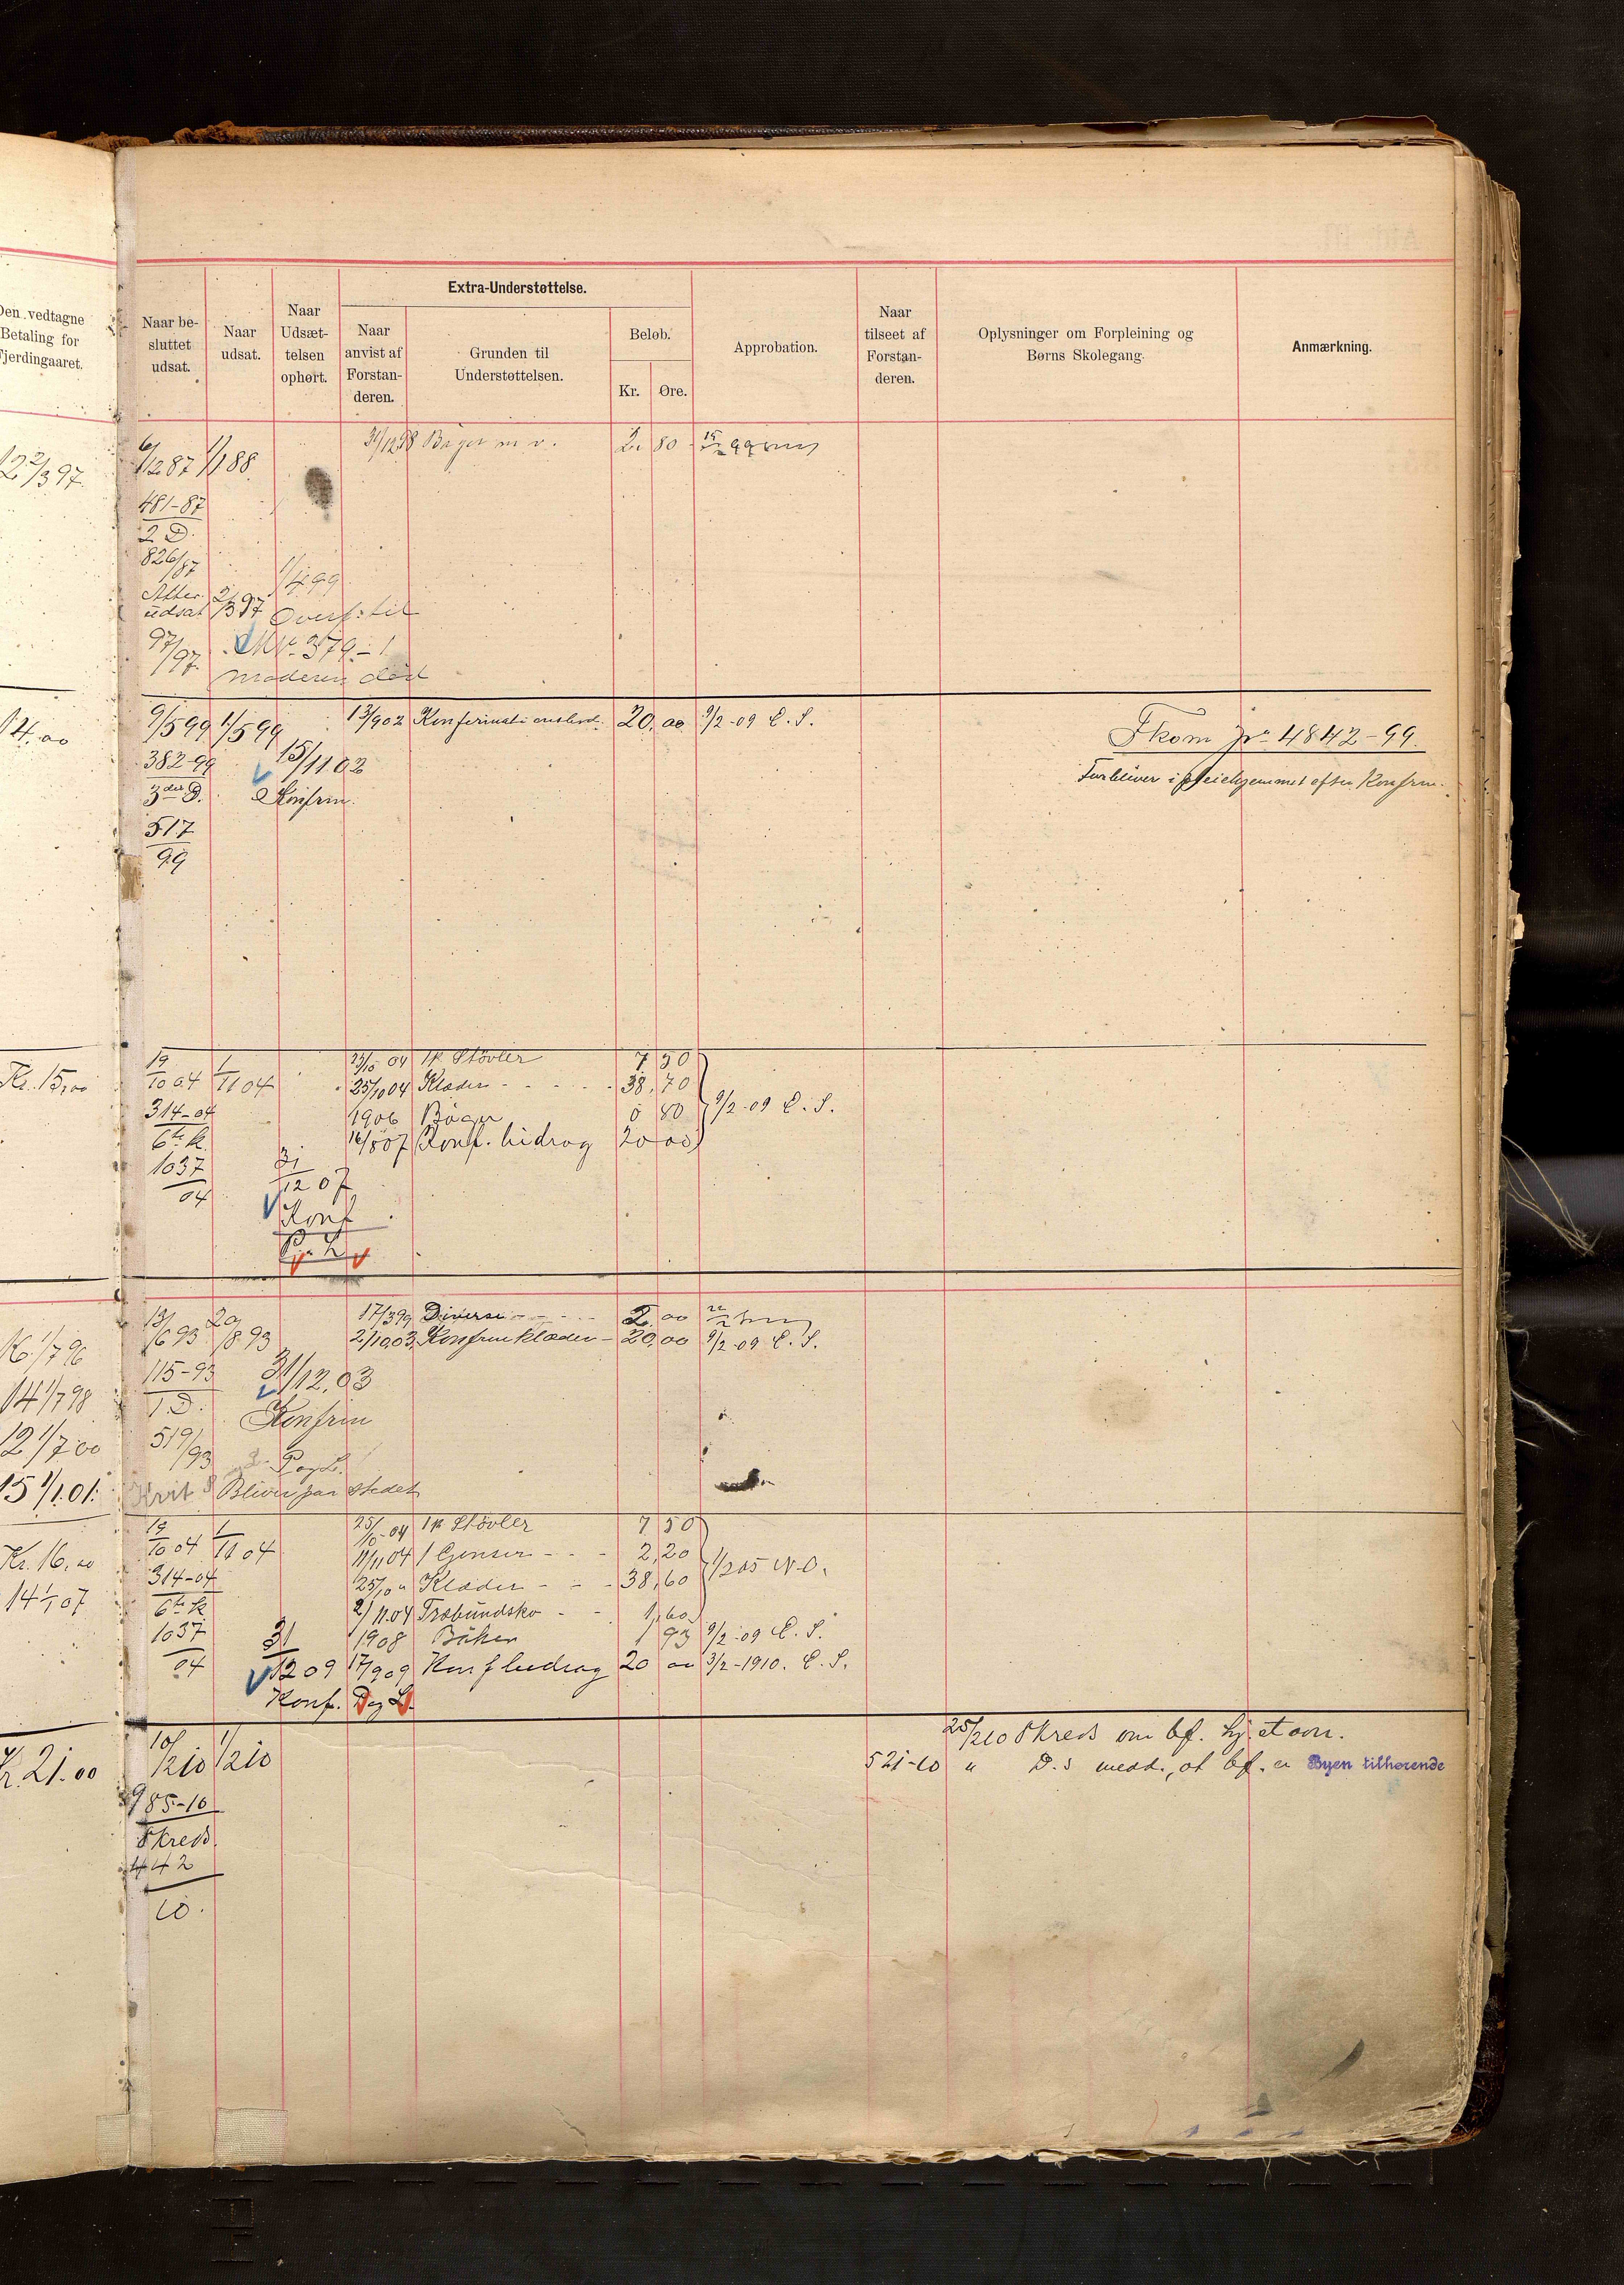 Den vedtagne
Betaling for
Fjerdingaaret.
Naar be-
sluttet
udsat.
Naar
udsat.
Naar
Udsæt-
telsen
ophørt.
Extra-Understøttelse.
Naar
anvist af
Forstan-
deren.
Grunden til
Understøttelsen.
Beløb.
Kr.
Øre.
Approbation.
Naar
tilseet af
Forstan-
deren.
Oplysninger om Forpleining og
Børns Skolegang.
Anmærkning.
6/12 87 1/1 88.
31/12 98 Bøger m v. 2. 80
481-87
2 D.
826/87
1/4 99
Atter
udsat 2/3 97 Overf. til
97/97. Nr. 379-1
Moderen død
14.00
9/5 99 1/5 99 13/9 02 20.00 9/2-09 C. S.
382-99 15/11 02
3die D. Konfirm.
517
99
Fkom Jr. 4842-99.
Forbliver i pleiehjemmet efter Konfrm.
Kr. 15,00
19/10 04 1/11 04 1 p. Støvler 7 50
314-04 25/10 04 Klæder - - - 38,70
1906 Bøger 0 80 9/2-09 C. S.
6te K. 16/8 07 Konf. bidrag 20 00
1037
04
31/12 07
Konf
16 1/7 96
13/6 93 29/8 93 17/3 99 Diverse - - - 2.00
2/10 03 Konfirmklæder - 20,00 9/2-09 C. S.
14 1/7 98
115-93 31/12.03
1 D. Konfrm
12 1/7 00
519/93
15 1/1 01. Bliver paa stedet
Kr. 16,00
19/10 04 1/11 04 25/10-04 1 p. Støvler 7 50
11/11 04 1 Genser - - - 2,20
314-04 25/10 " Klæder - - - 38,60 1/2 05 N. O.
14 1/1 07
6te K 2/11.04 Træbundsko - - 1,60
1037 1908 Bøker 1 93 9/2-09 C. S.
04 31/12 09 17/9 09 Konf bidrag 20 00 3/2-1910. C. S.
Konf. D og L.
Kr. 21.00
10/2 10 1/2 10
985-10
Fkreds
442
10.
25/2 10 Fkreds om bf. hj. et ov.
521-10 " D. s medd., at bf. er Byen tilhørende